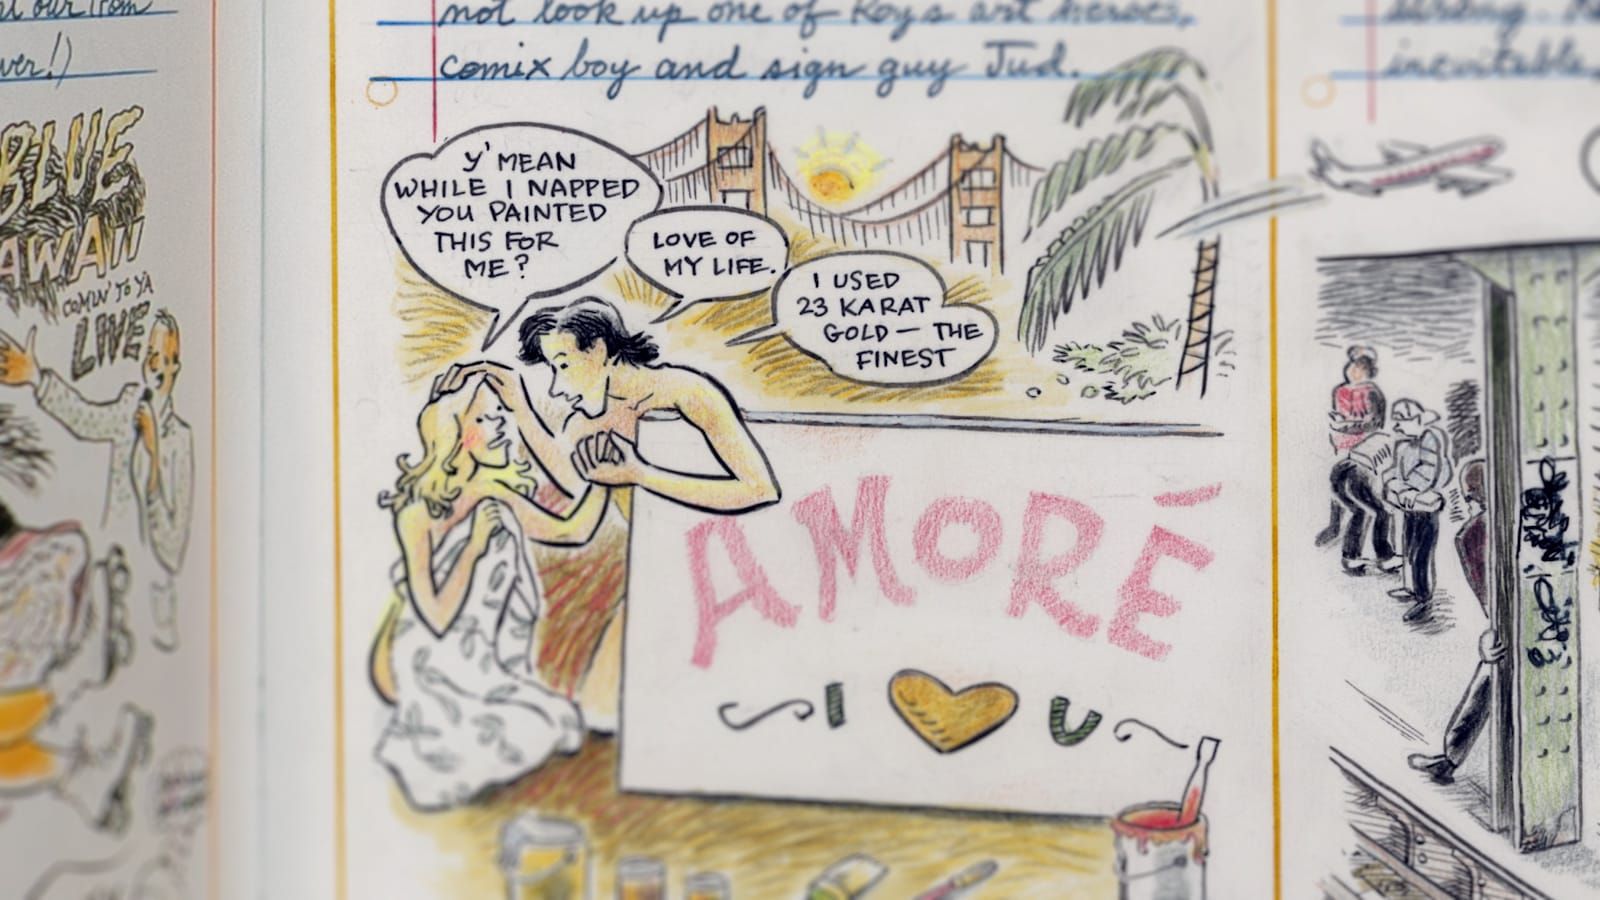 ver!)
BLUE
HAWAII
COMIN' TO YA
LIVE
not look up one of Roy's art heroes,
comix boy and sign guy Jud.
Y'MEAN
WHILE I NAPPED
YOU PAINTED
THIS FOR
ME?
LOVE OF
MY LIFE.
I USED
23 KARAT
GOLD — THE
FINEST
AMORÉ
I U
inevitable,